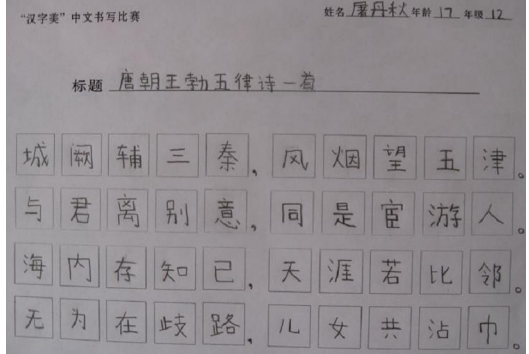 “汉字美”中文书写比赛 姓名 屠丹秋 年龄 17 年级 12
标题 唐朝王勃五律诗一首
城阙辅三秦，风烟望五津。
与君离别意，同是宦游人。
海内存知己，天涯若比邻。
无为在歧路，儿女共沾巾。